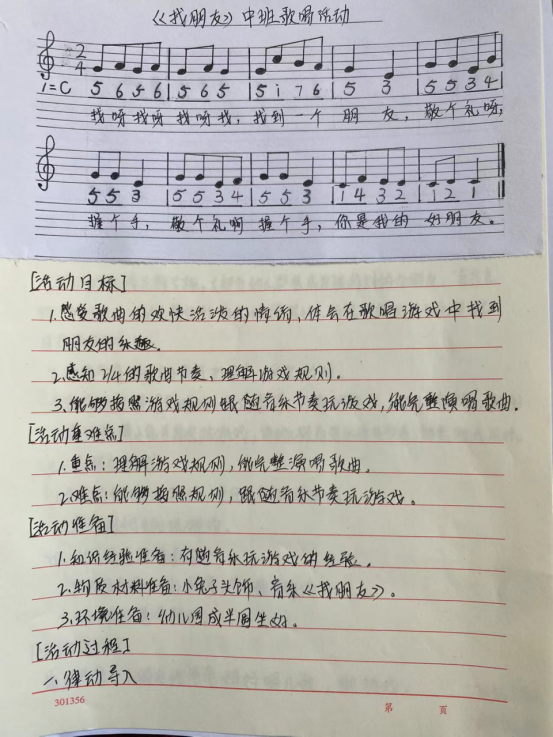 《找朋友》中班歌唱活动
2
4
1=C 5 6 5 6 | 5 6 5 | 5 i 7 6 | 5 3 | 5 5 3 4 |
找呀找呀找呀找,找到一个朋友,敬个礼呀,
5 5 3 | 5 5 3 4 | 5 5 3 | 1 4 3 2 | 1 2 1 ‖
握个手,敬个礼啊握个手,你是我的好朋友。
[活动目标]
1.感受歌曲的欢快活泼的情绪,体会在歌唱游戏中找到
朋友的乐趣.
2.感知2/4的歌曲节奏、理解游戏规则.
3.能够按照游戏规则跟随音乐节奏玩游戏,能完整演唱歌曲.
[活动重难点]
1.重点:理解游戏规则,能完整演唱歌曲.
2.难点:能够按照规则,跟随音乐节奏玩游戏.
[活动准备]
1.知识经验准备:有随音乐玩游戏的经验.
2.物质材料准备:小兔子头饰、音乐《找朋友》.
3.环境准备:幼儿围成半圆坐好.
[活动过程]
一、律动导入
301356 第 頁